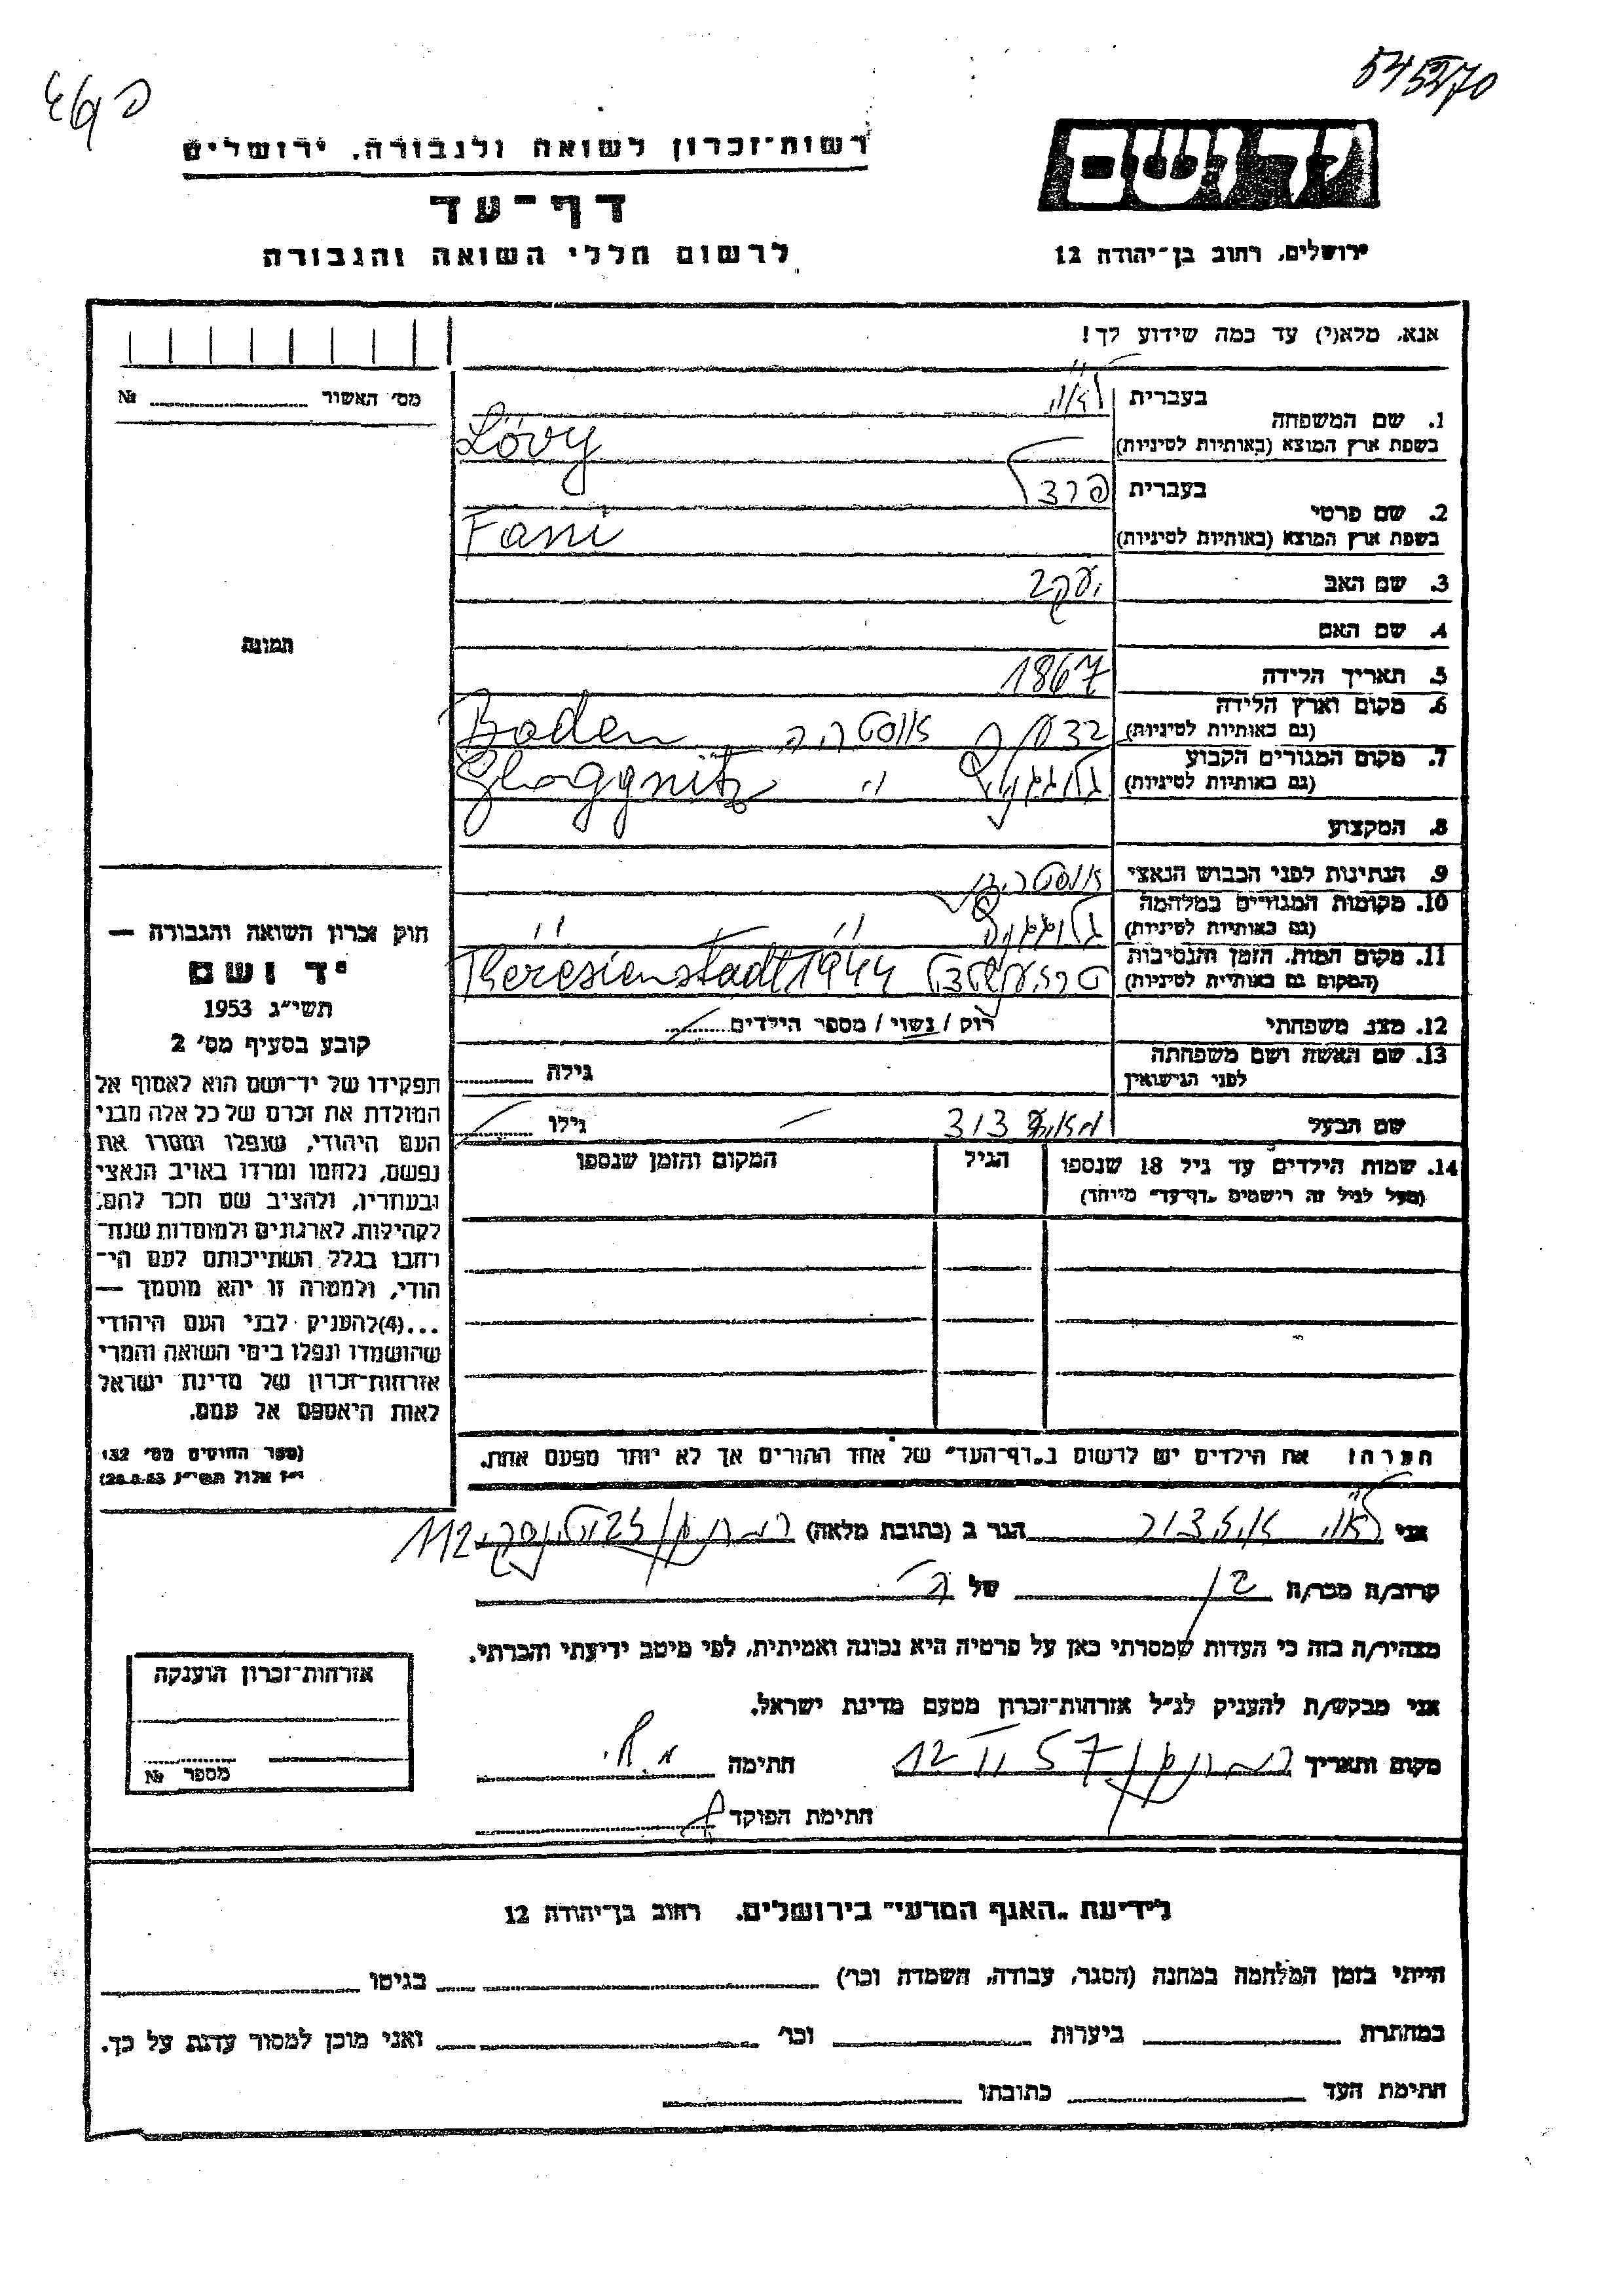 545270
רשות־זכרון לשואה ולגבורה, ירושלים
יד ושם
דף־עד
לרשום חללי השואה והגבורה
ירושלים, רחוב בן־יהודה 12
אנא, מלא(י) עד כמה שידוע לך!
מס׳ האשור № 
1. שם המשפחה
בעברית
בשפת ארץ המוצא (באותיות לטיניות) Lövy
2. שם פרטי
בעברית
בשפת ארץ המוצא (באותיות לטיניות) Fani
3. שם האב יעקב
4. שם האם
5. תאריך הלידה 1867
6. מקום וארץ הלידה
(גם באותיות לטיניות) אוסטריה Baden
7. מקום המגורים הקבוע
(גם באותיות לטיניות) גלוגניץ " Gloggnitz
8. המקצוע
9. הנתינות לפני הכבוש הנאצי אוסטרית
10. מקומות המגורים במלחמה
(גם באותיות לטיניות) גלוגניץ " "
11. מקום המות, הזמן והנסיבות
(המקום גם באותיות לטיניות) טרזינשטדט Theresienstadt 1944
12. מצב משפחתי רוק / נשוי / מספר הילדים
13. שם האשה ושם משפחתה
לפני הנישואין גילה
שם הבעל גילו
14. שמות הילדים עד גיל 18 שנספו הגיל המקום והזמן שנספו
(מעל לגיל זה רישמים „דף־עד” מיוחד)
תמונה
חוק זכרון השואה והגבורה —
יד ושם
תשי״ג 1953
קובע בסעיף מס׳ 2
תפקידו של יד־ושם הוא לאסוף אל
המולדת את זכרם של כל אלה מבני
העם היהודי, שנפלו ומסרו את
נפשם, נלחמו ומרדו באויב הנאצי
ובעוזריו, ולהציב שם וזכר להם,
לקהילות, לארגונים ולמוסדות שנח־
רבו בגלל השתייכותם לעם הי־
הודי, ולמטרה זו יהא מוסמך —
...(4)להעניק לבני העם היהודי
שהושמדו ונפלו בימי השואה והמרי
אזרחות־זכרון של מדינת ישראל
לאות היאספם אל עמם.
(ספר החוקים מס׳ 132
י״ז אלול תשי״ג 28.8.53)
הערה! את הילדים יש לרשום ב„דף־העד” של אחד ההורים אך לא יותר מפעם אחת.
אני הגר ב (כתובת מלאה) 112
קרוב/ה מכר/ה בן של הנ״ל
מצהיר/ה בזה כי העדות שמסרתי כאן על פרטיה היא נכונה ואמיתית, לפי מיטב ידיעתי והכרתי.
אני מבקש/ת להעניק לנ״ל אזרחות־זכרון מטעם מדינת ישראל.
מקום ותאריך רמת גן 12 II 57 חתימה
חתימת הפוקד
אזרחות־זכרון הוענקה
מספר №
לידיעת „האגף המדעי” בירושלים, רחוב בן־יהודה 12
הייתי בזמן המלחמה במחנה (הסגר, עבודה, השמדה וכו׳) בגיטו
במחתרת ביערות וכו׳ ואני מוכן למסור עדות על כך.
חתימת העד כתובתו